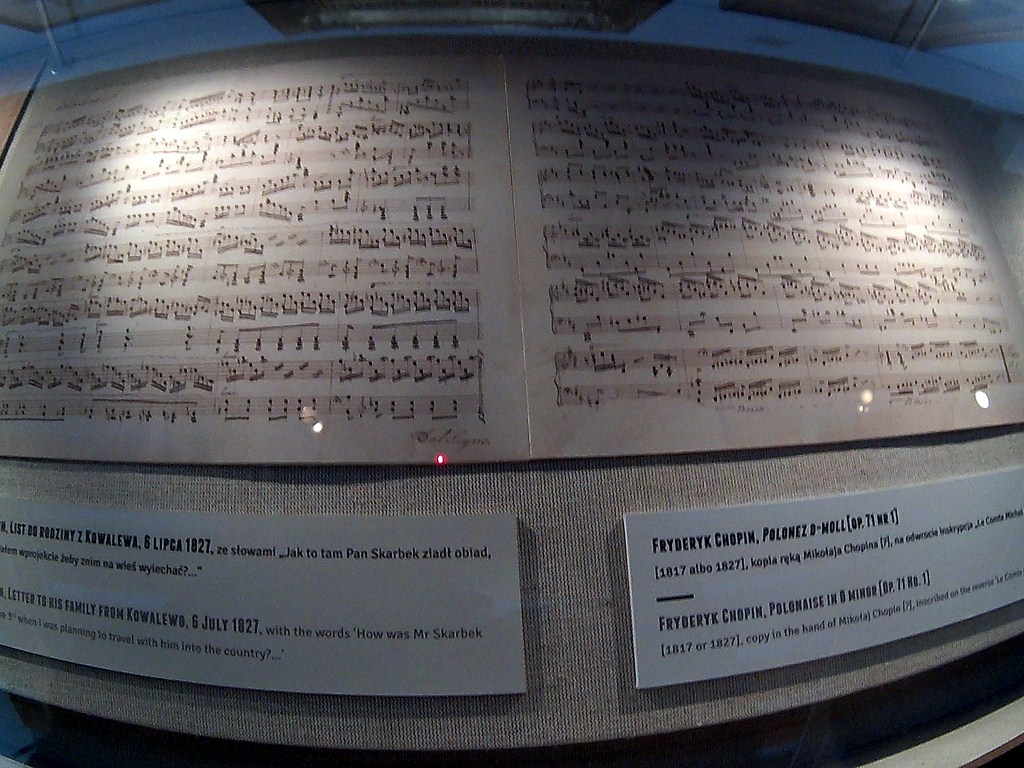 N, LIST DO RODZINY Z KOWALEWA, 6 LIPCA 1827, ze słowami „Jak to tam Pan Skarbek zjadł obiad,
wprojekcie żeby znim na wieś wyiechać?..."
N, LETTER TO HIS FAMILY FROM KOWALEWO, 6 JULY 1827, with the words ‘How was Mr Skarbek
when I was planning to travel with him into the country?...’
FRYDERYK CHOPIN, POLONEZ D-MOLL [OP. 71 NR 1]
[1817 albo 1827], kopia ręką Mikołaja Chopina [?], na odwrocie inskrypcja „Le Comte Michel
FRYDERYK CHOPIN, POLONAISE IN D MINOR [OP. 71 NO. 1]
[1817 or 1827], copy in the hand of Mikołaj Chopin [?], inscribed on the reverse ‘Le Comte